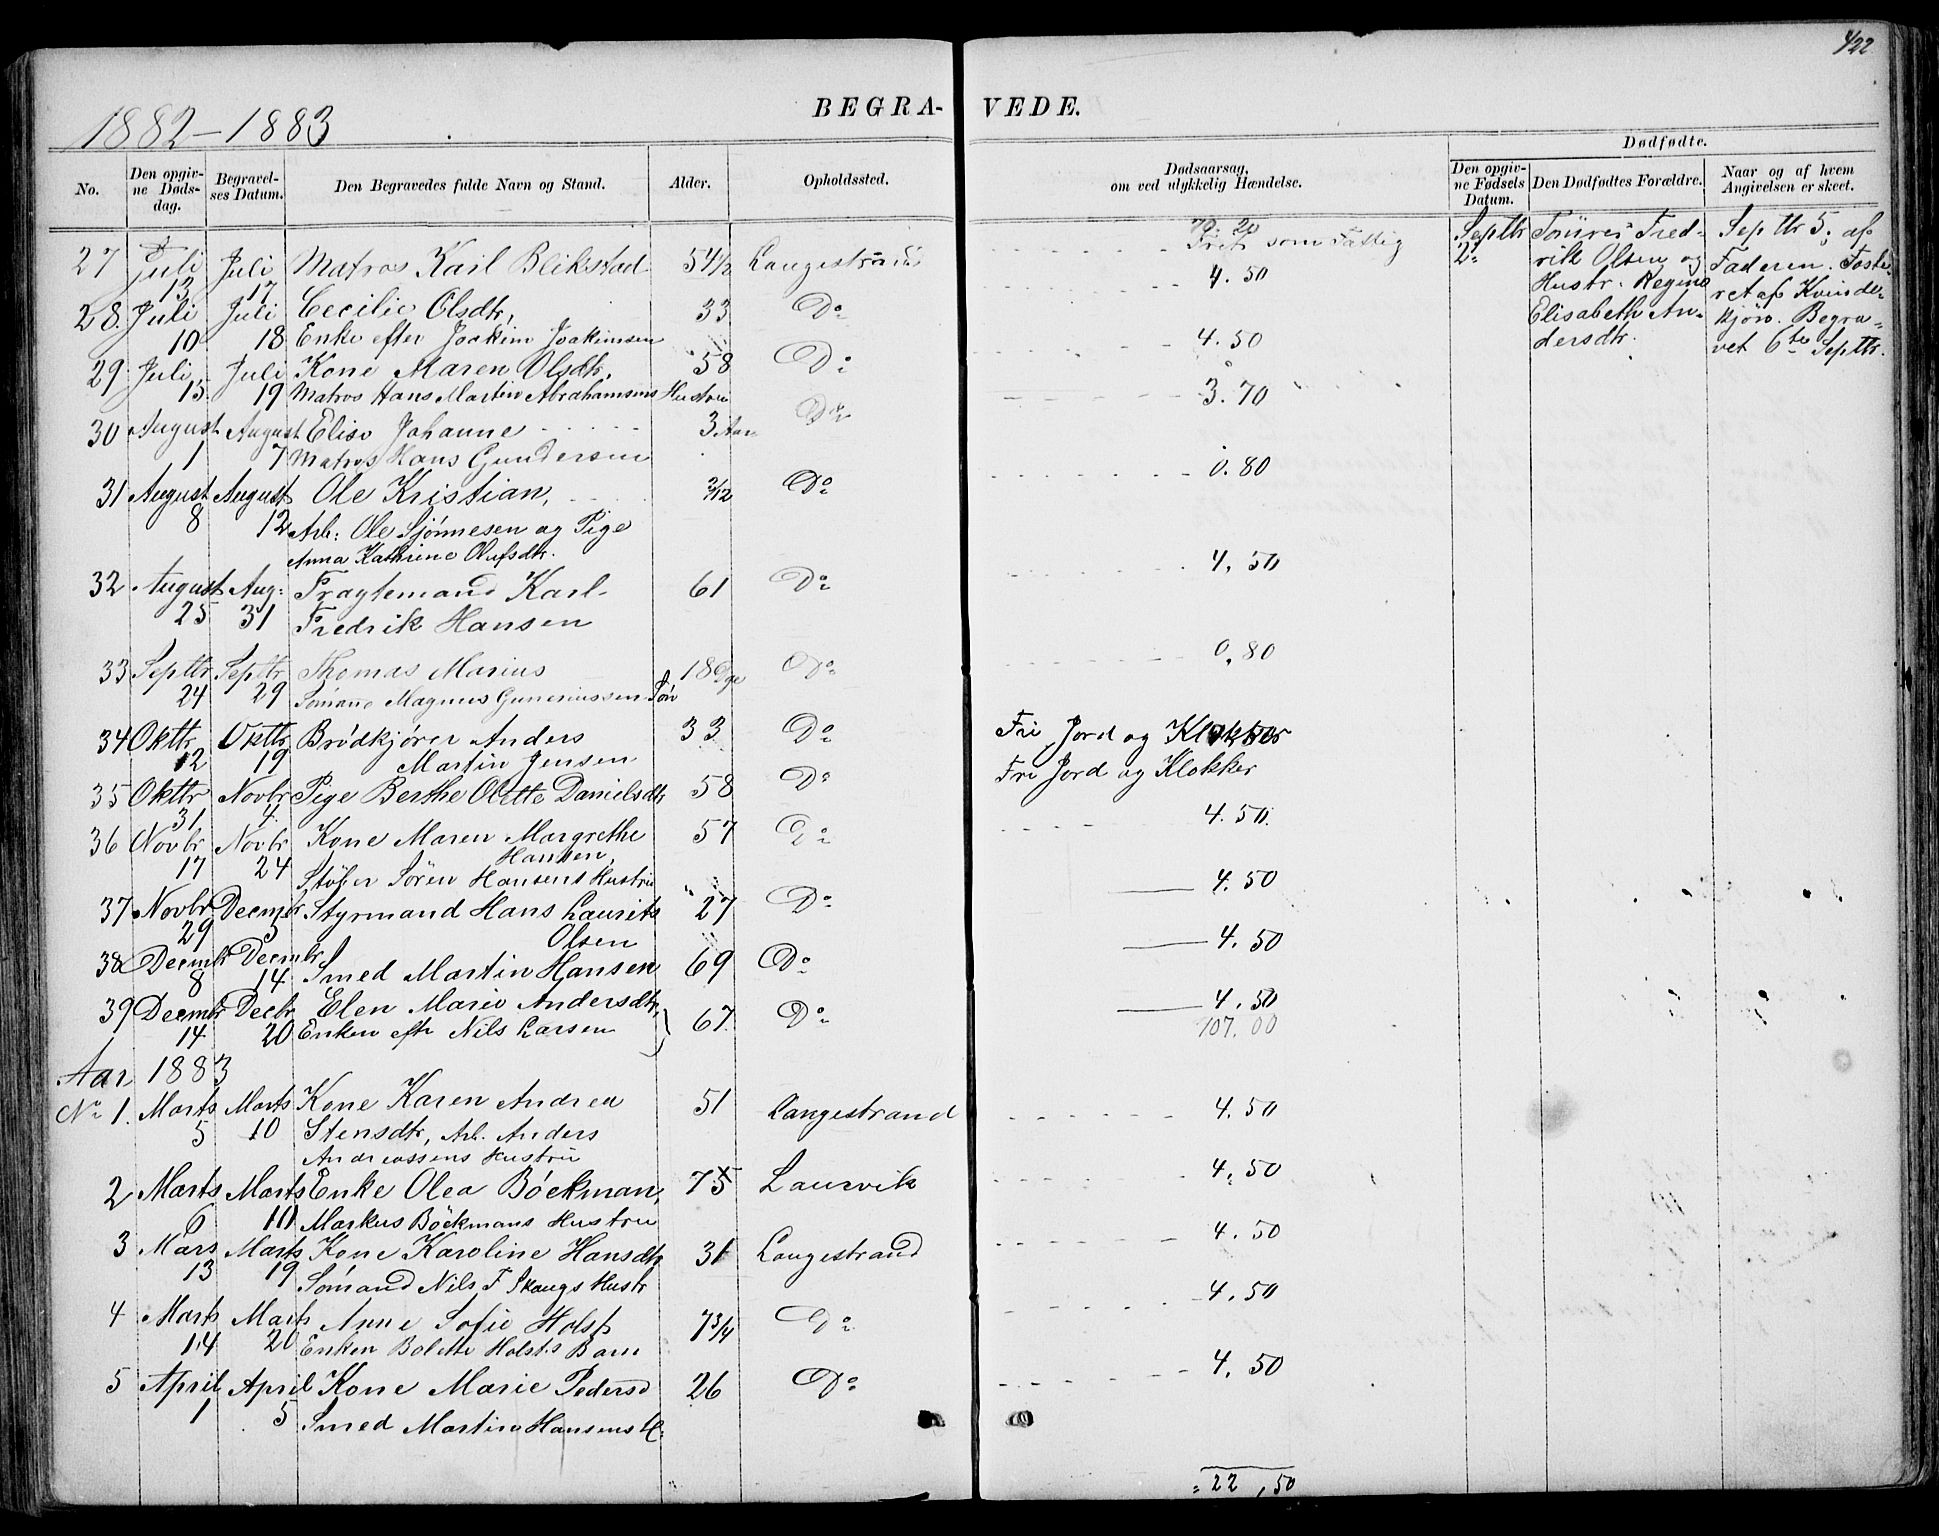 422
1882-1883
BEGRA-
VEDE.
No.
Den opgiv-
ne Døds-
dag.
Begravel-
ses Datum.
Den Begravedes fulde Navn og Stand.
Alder.
Opholdssted.
Dødsaarsag,
om ved ulykkelig Hændelse.
Dødfødte.
Den opgiv-
ne Fødsels
Datum.
Den Dødfødtes Forældre.
Naar og af hvem
Angivelsen er skeet.
27 Juli 13 Juli 17 Matros Karl Blikstad 54 1/2 Langestrand
28. Juli 10 Juli 18 Cecilie Olsdtr, 33 Do
Enke efter Joakim Joakimsen
29 Juli 15 Juli 19 Kone Maren Olsdtr, 58 Do
Matros Hans Martin Abrahamsens Hustru
30 August 1 August 7 Elise Johanne 3 Aar Do
Matros Hans Gundersen
31 August 8 August 12 Ole Kristian, 3/12 Do
Arb: Ole Sjønnesen og Pige
Anna Kathrine Olufsdtr.
32 August 25 Aug: 31 Fragtemand Karl 61 Do
Fredrik Hansen
33 Septbr 24 Septbr 29 Thomas Marius 18 Dge Do
Sømand Magnus Gunerinssen Søn
34 Oktbr 12 Oktbr 19 Brødkjører Anders 33 Do
Martin Jensen
35 Oktbr 31 Novbr 4. Pige Berthe Olette Danielsdtr 58 Do
36 Novbr 17 Novbr 24 Kone Maren Margrethe 57 Do
Hansen,
Støber Sören Hansens Hustru
37 Novbr 29 Decmbr 5 Styrmand Hans Laurits 27 Do
Olsen
38 Decmbr 8 Decmbr 14 Smed Martin Hansen 69 Do
39 Decmbr 14 Decbr 20 Elen Marie Andersdtr, 67 Do
Enken eftr Nils Larsen
Aar 1883
No 1. Marts 5 Marts 10 Kone Karen Andrea 51 Langestrand
Stensdtr, Arb. Anders
Andreassens Hustru
2 Marts 6 Marts 10 Enke Olea Böckman, 75 Laurvik
Markus Böckmans Hustru
3 Mars 13 Marts 19 Kone Karoline Hansdtr 31 Langestrand
Sømand Nils F Skaugs Hustr
4 Marts 14 Marts 20 Anne Sofie Holst 7 3/4 Do
Enken Bolette Holsts Barn
5 April 1 April 5 Kone Marie Pedersd 26 Do
Smed Martin Hansens H:
79. 20
Frit som Fattig
4.50
4.50
3.70
0.80
4.50
0.80
Fri Jord og Klokker
Fri Jord og Klokker
4.50.
4.50
4.50
4.50
107.00
4.50
4.50
4.50
4.50
4.50
22,50
Septbr
2
Toures Fred-
rik Olsen og
Hustr. Regine
Elisabeth An-
dersdtr.
Septbr 5, af
Faderen. Foste-
ret af Kvinde-
kjøn. Begra-
vet 6te Septbr.